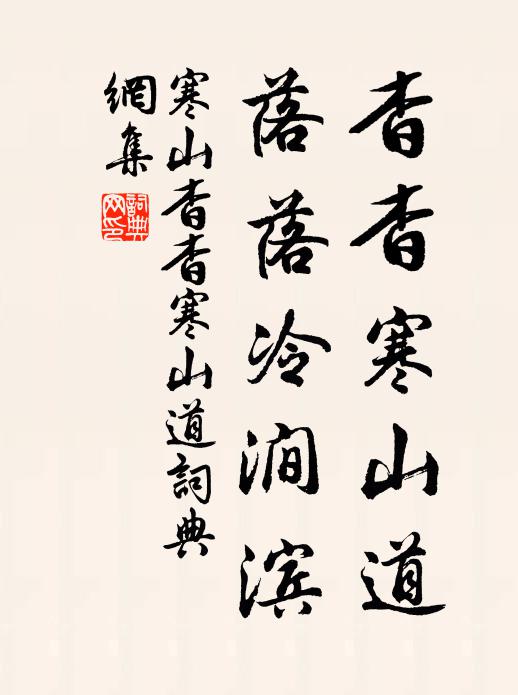 杳杳寒山道
落落冷涧滨
寒山杳杳寒山道詞典
網集
詞典网印